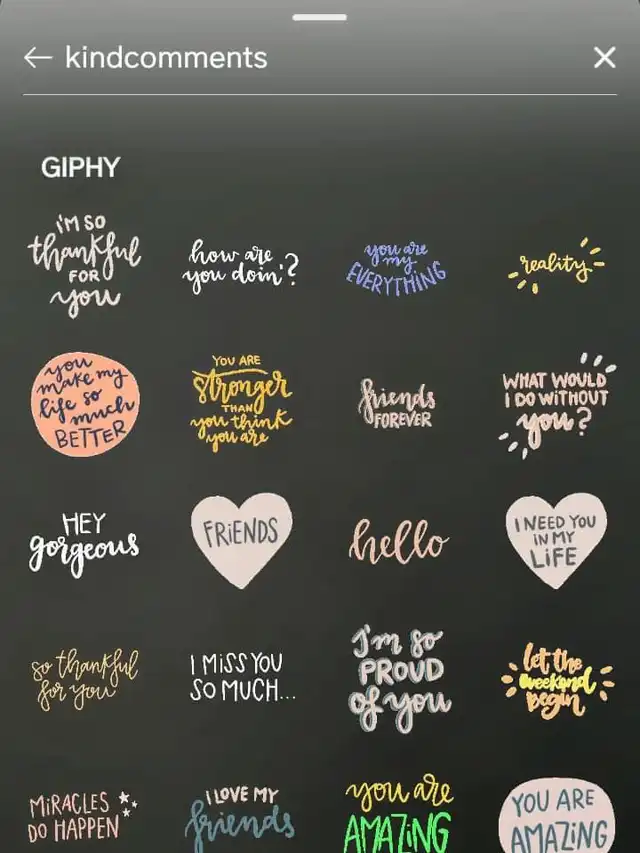 kindcomments
GIPHY
I'M SO
thankful
FOR
you
how are
you doin'?
you are
my
EVERYTHING
reality
you
make my
life so
much
BETTER
YOU ARE
stronger
THAN
you think
you are
friends
FOREVER
WHAT WOULD
I DO WITHOUT
you?
HEY
gorgeous
FRiENDS
hello
I NEED YOU
IN MY
LiFE
so thankful
for you
I MiSS YOU
SO MUCH...
I'm so
PROUD
of you
let the
weekend
Begin
MiRACLES
DO HAPPEN
I LOVE MY
friends
you are
AMAZiNG
YOU ARE
AMAZiNG